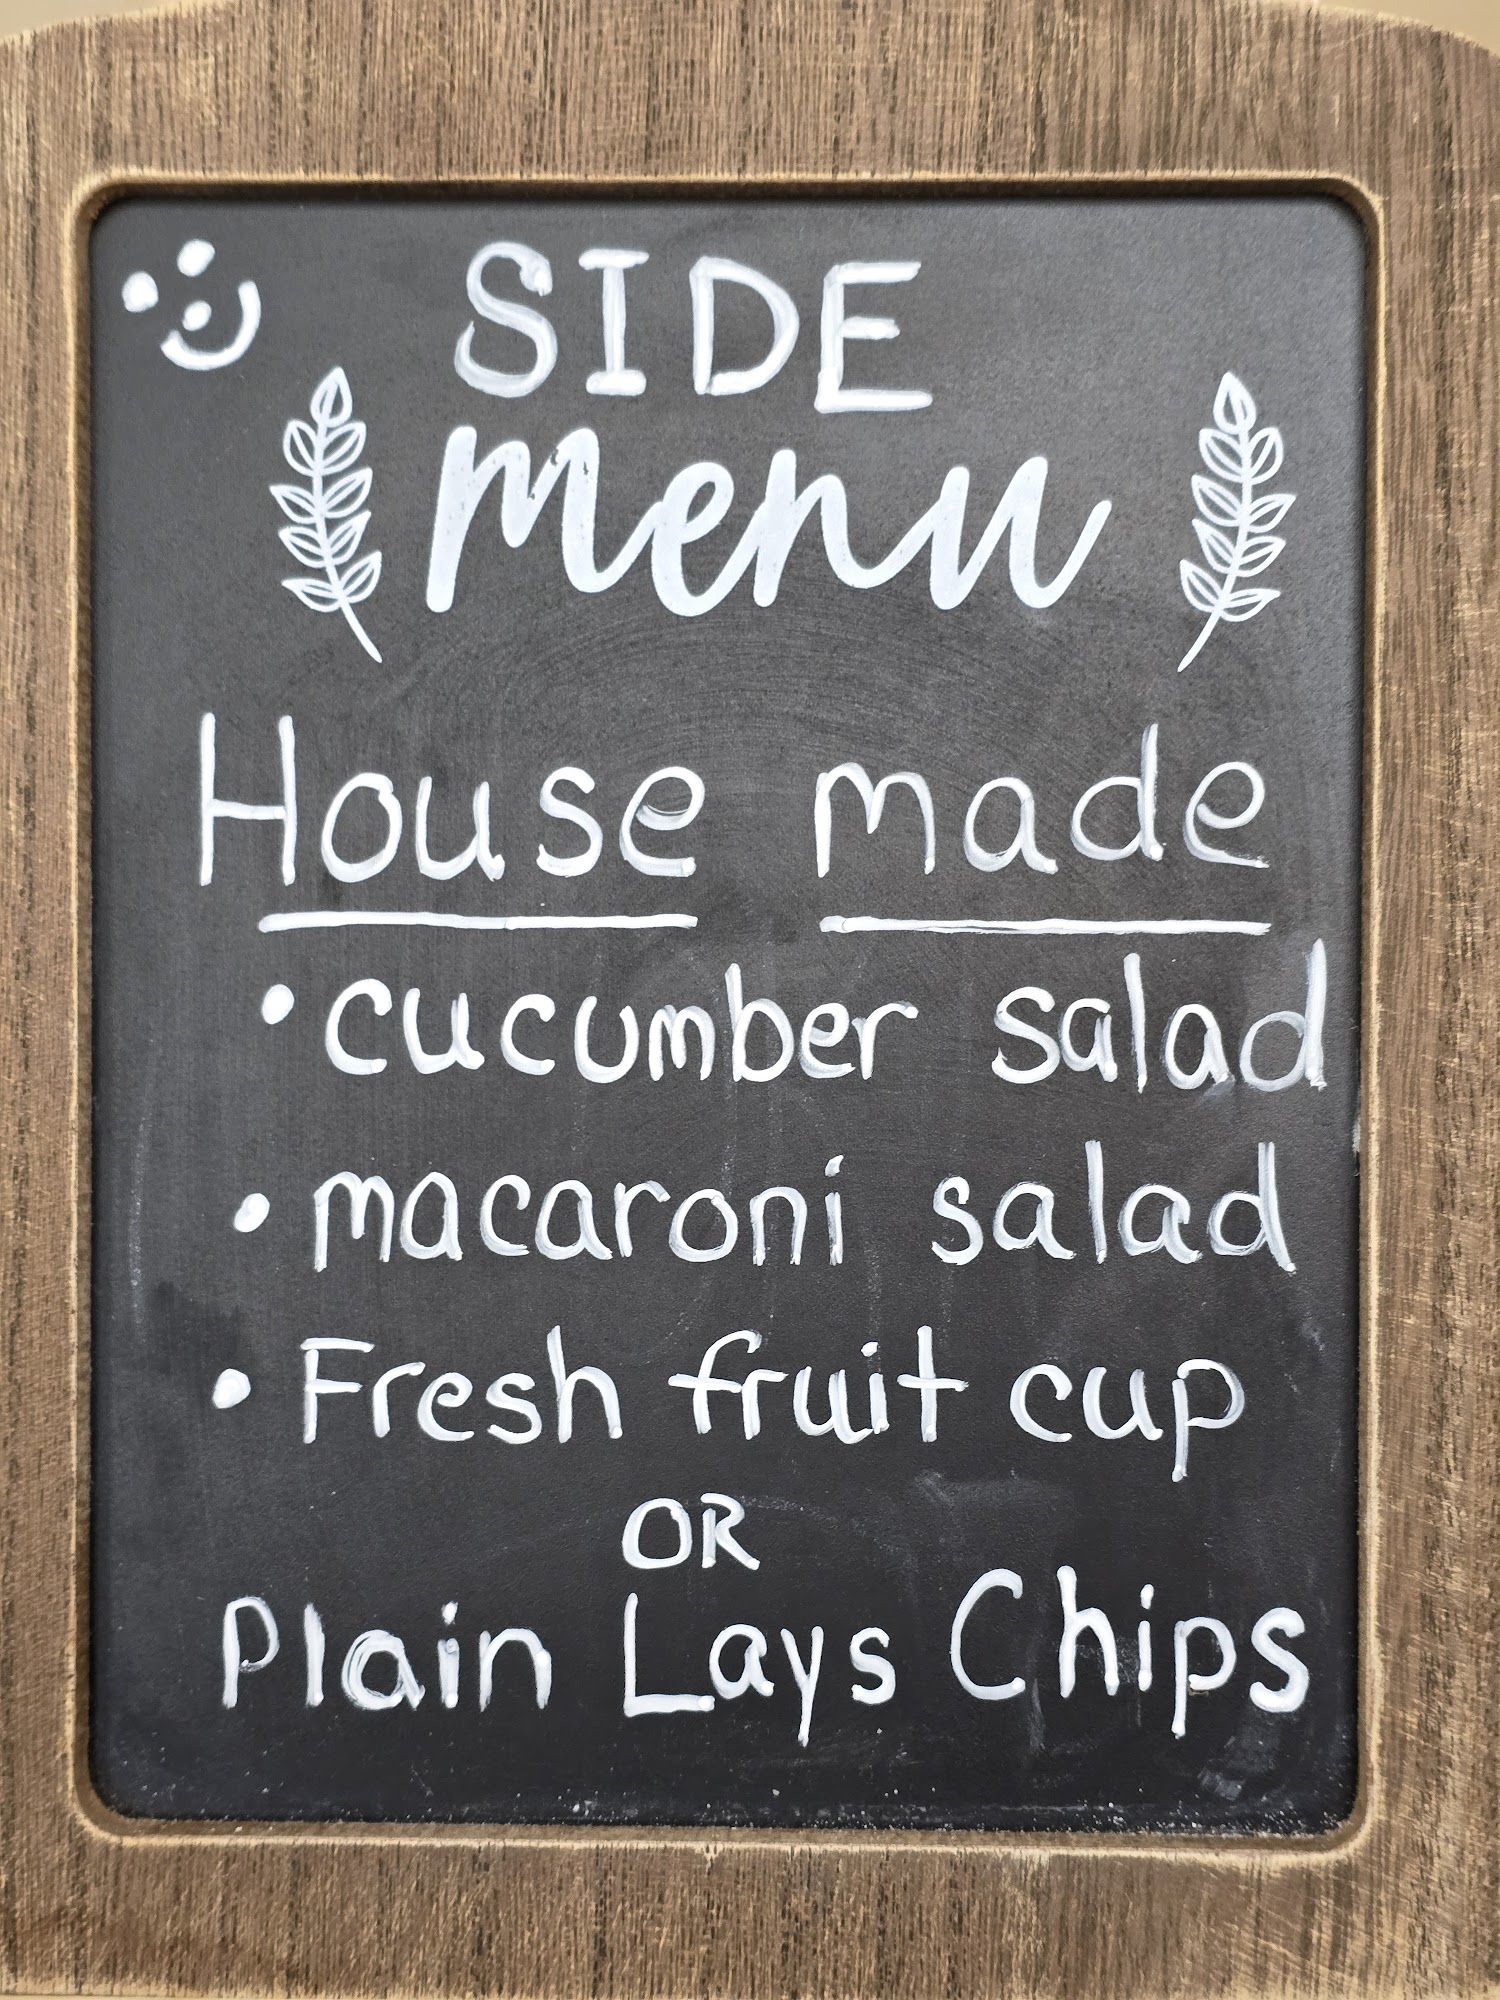 SIDE
menu
House made
• cucumber salad
• macaroni salad
• Fresh fruit cup
OR
Plain Lays Chips